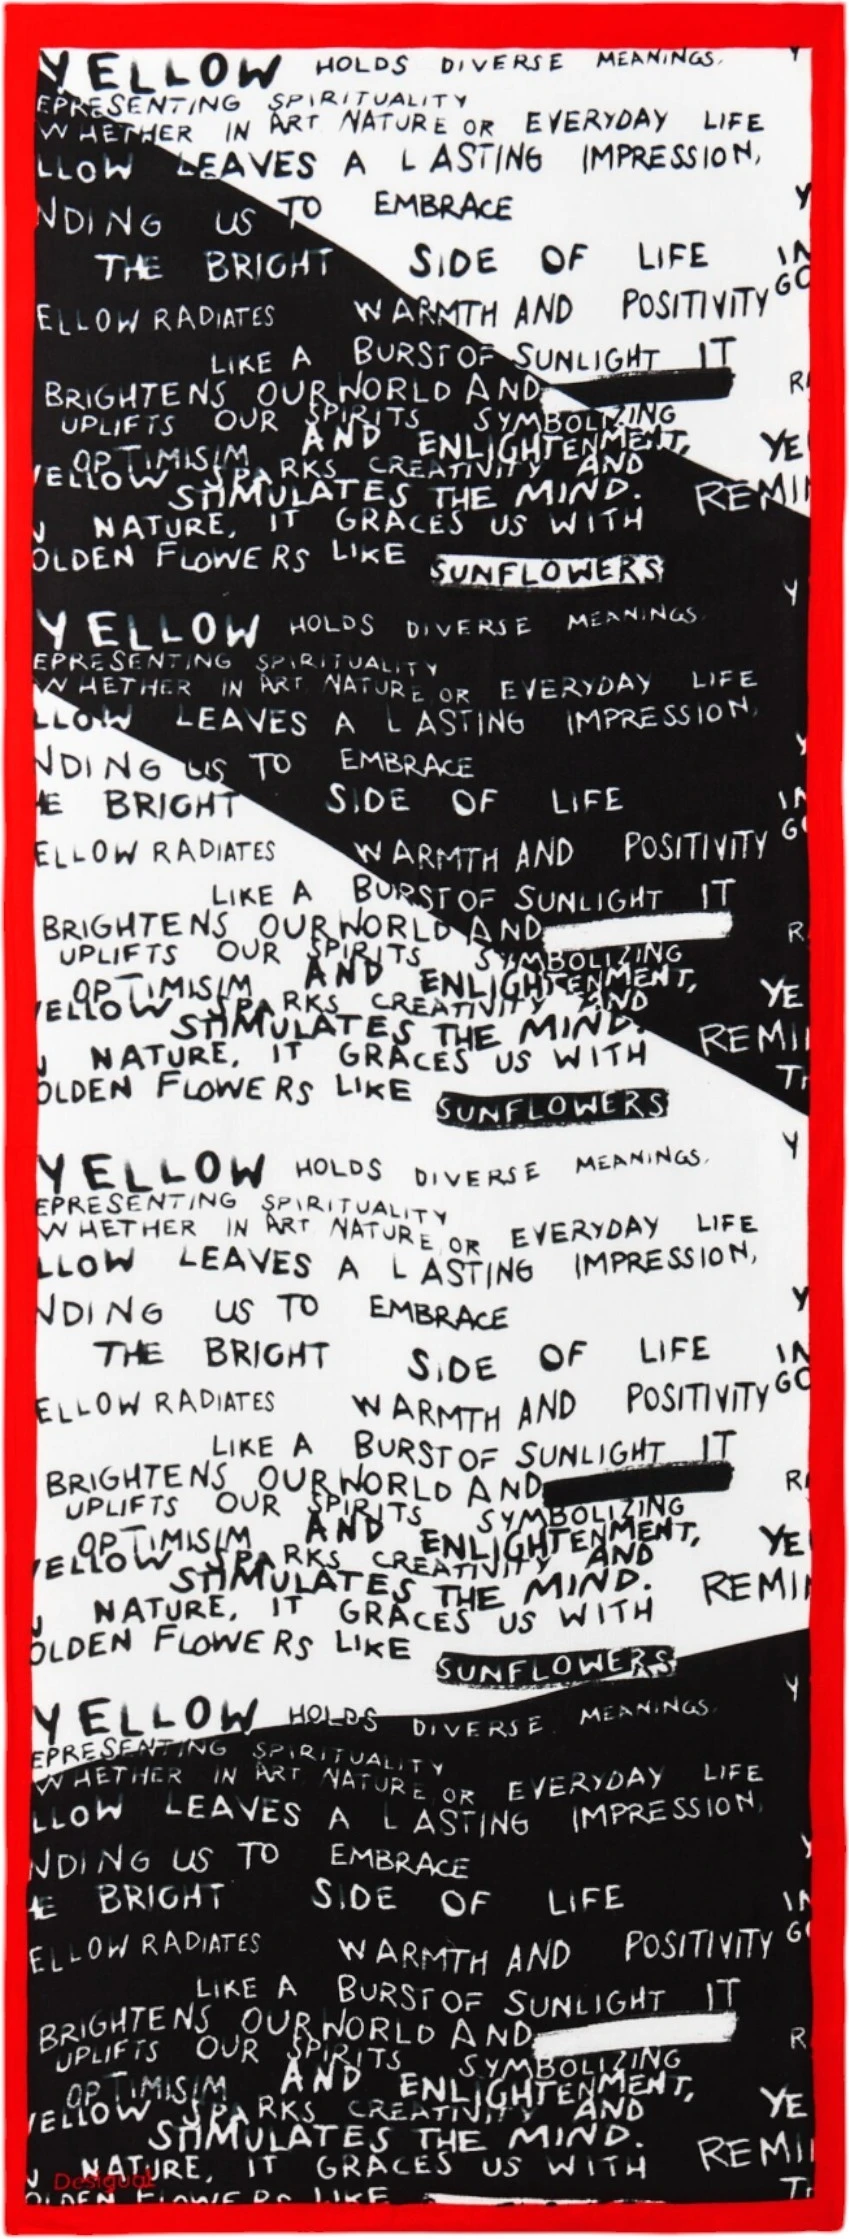 YELLOW HOLDS DIVERSE MEANINGS. Y
EPRESENTING SPIRITUALITY
WHETHER IN ART NATURE OR EVERYDAY LIFE
LLOW LEAVES A LASTING IMPRESSION,
NDING US TO EMBRACE Y
THE BRIGHT SIDE OF LIFE IN
ELLOW RADIATES WARMTH AND POSITIVITY GO
LIKE A BURST OF SUNLIGHT IT
BRIGHTENS OUR WORLD AND R
UPLIFTS OUR SPIRITS SYMBOLIZING
OPTIMISIM AND ENLIGHTENMENT, YE
YELLOW SPARKS CREATIVITY AND
STIMULATES THE MIND. REMI
N NATURE, IT GRACES US WITH
OLDEN FLOWERS LIKE SUNFLOWERS
Y
YELLOW HOLDS DIVERSE MEANINGS.
EPRESENTING SPIRITUALITY
WHETHER IN ART NATURE OR EVERYDAY LIFE
LLOW LEAVES A LASTING IMPRESSION,
NDING US TO EMBRACE Y
HE BRIGHT SIDE OF LIFE IN
ELLOW RADIATES WARMTH AND POSITIVITY GO
LIKE A BURST OF SUNLIGHT IT
BRIGHTENS OUR WORLD AND R
UPLIFTS OUR SPIRITS SYMBOLIZING
OPTIMISIM AND ENLIGHTENMENT, YE
YELLOW SPARKS CREATIVITY AND
STIMULATES THE MIND. REMI
N NATURE, IT GRACES US WITH TH
OLDEN FLOWERS LIKE SUNFLOWERS
YELLOW HOLDS DIVERSE MEANINGS. Y
EPRESENTING SPIRITUALITY
WHETHER IN ART NATURE OR EVERYDAY LIFE
LLOW LEAVES A LASTING IMPRESSION,
NDING US TO EMBRACE Y
THE BRIGHT SIDE OF LIFE IN
ELLOW RADIATES WARMTH AND POSITIVITY GO
LIKE A BURST OF SUNLIGHT IT
BRIGHTENS OUR WORLD AND R
UPLIFTS OUR SPIRITS SYMBOLIZING
OPTIMISIM AND ENLIGHTENMENT, YE
YELLOW SPARKS CREATIVITY AND
STIMULATES THE MIND. REMI
N NATURE, IT GRACES US WITH
OLDEN FLOWERS LIKE SUNFLOWERS
YELLOW HOLDS DIVERSE MEANINGS. Y
EPRESENTING SPIRITUALITY
WHETHER IN ART NATURE OR EVERYDAY LIFE
LLOW LEAVES A LASTING IMPRESSION,
NDING US TO EMBRACE Y
HE BRIGHT SIDE OF LIFE IN
ELLOW RADIATES WARMTH AND POSITIVITY GO
LIKE A BURST OF SUNLIGHT IT
BRIGHTENS OUR WORLD AND R
UPLIFTS OUR SPIRITS SYMBOLIZING
OPTIMISIM AND ENLIGHTENMENT, YE
YELLOW SPARKS CREATIVITY AND
STIMULATES THE MIND. REMI
N NATURE, IT GRACES US WITH TH
Desigual
OLDEN FLOWERS LIKE